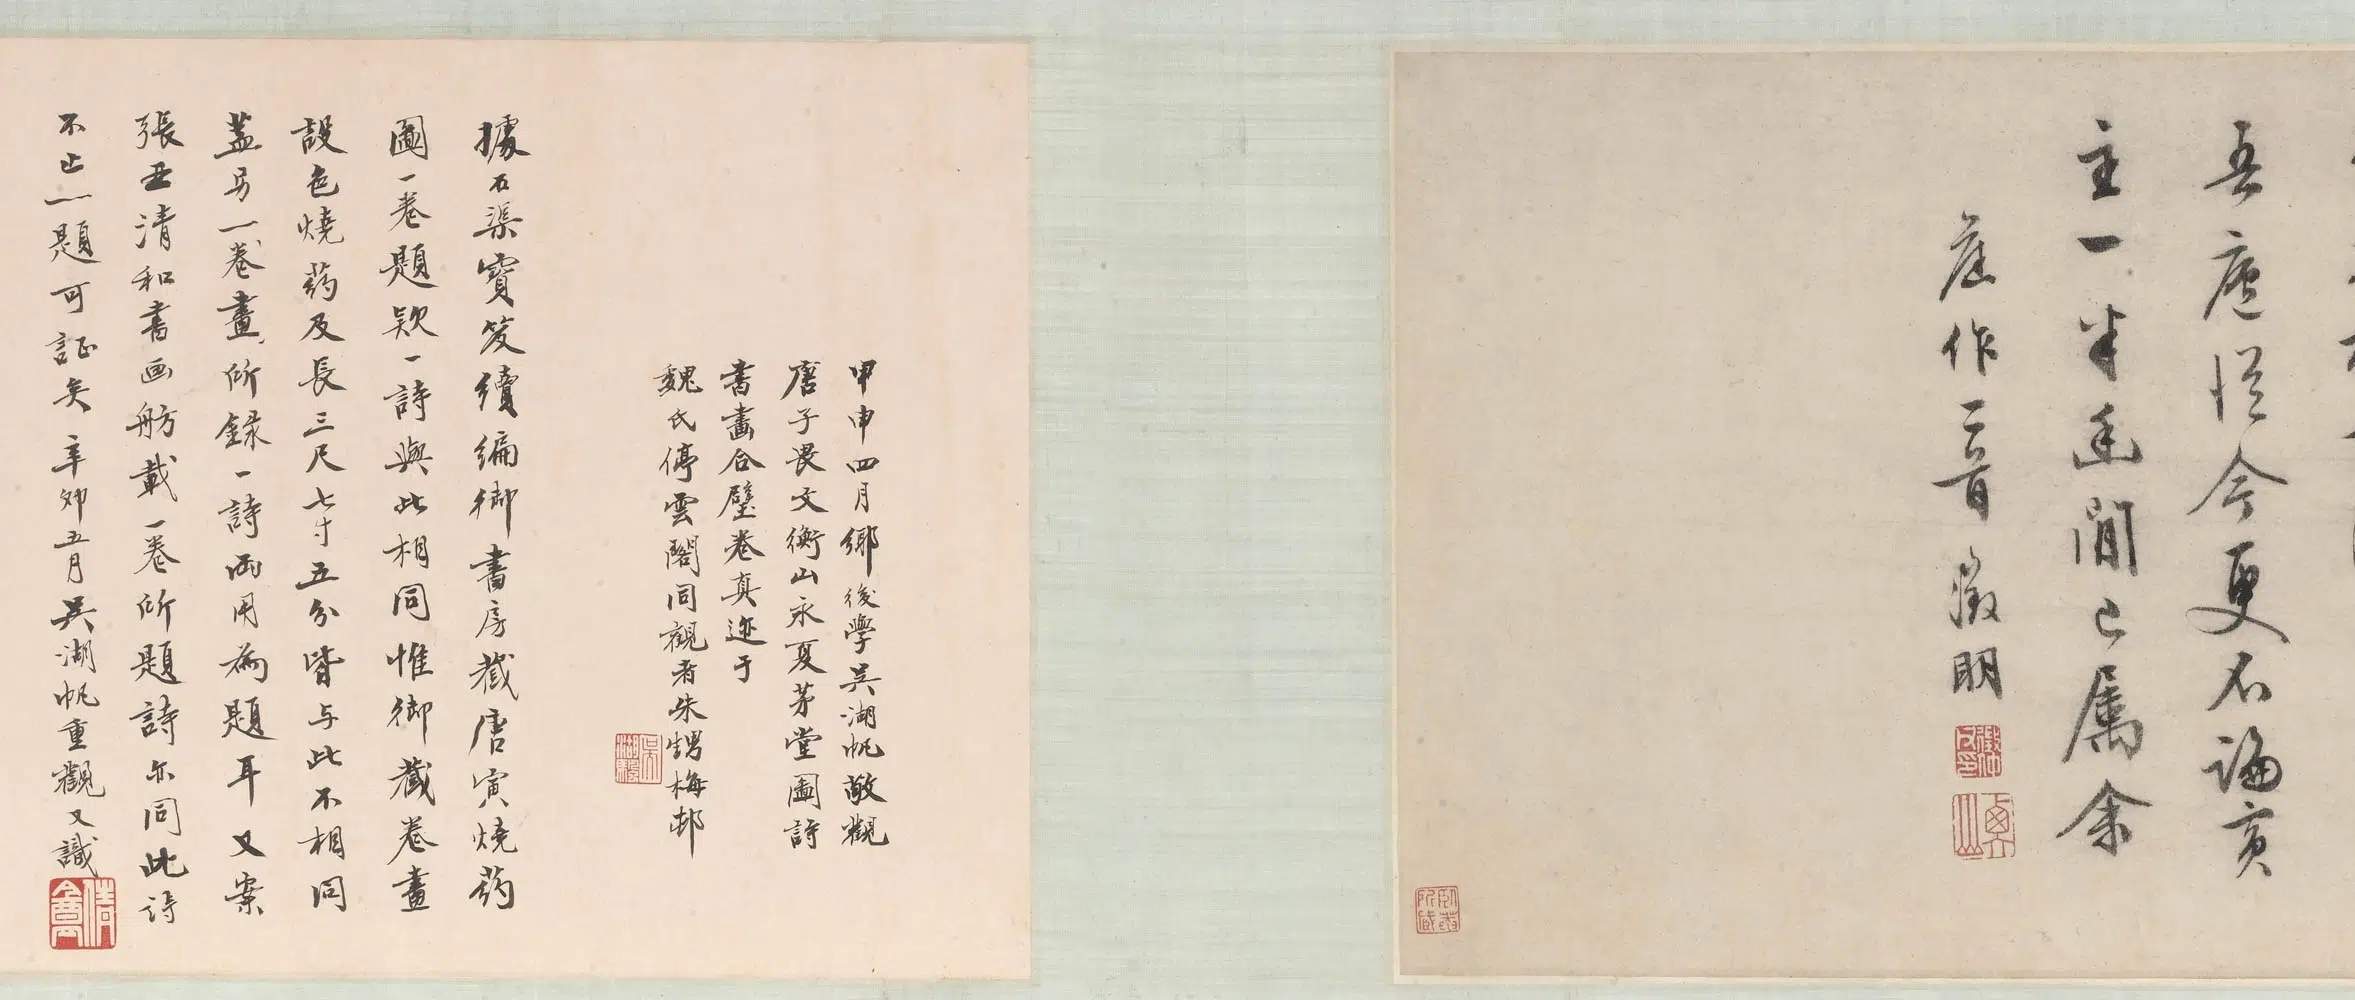 吾廬從今更不論賓
主一半幽閒已屬余
崖作二首 徵明
甲申四月鄉後學吳湖帆敬觀
唐子畏文衡山永夏茅堂圖詩
書畫合璧卷真迹于
魏氏停雲閣同觀者朱甥梅邨
據石渠寶笈續編御書房藏唐寅燒藥
圖一卷題款一詩與此相同惟御藏卷畫
設色燒藥及長三尺七寸五分皆与此不相同
蓋另一卷畫所錄一詩兩用為題耳又案
張丑清和書画舫載一卷所題詩亦同此詩
不止一題可証矣辛卯五月吳湖帆重觀又識